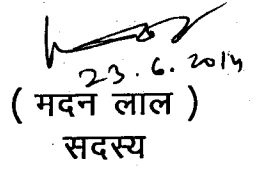 23.6.2014
( मदन लाल )
सदस्य